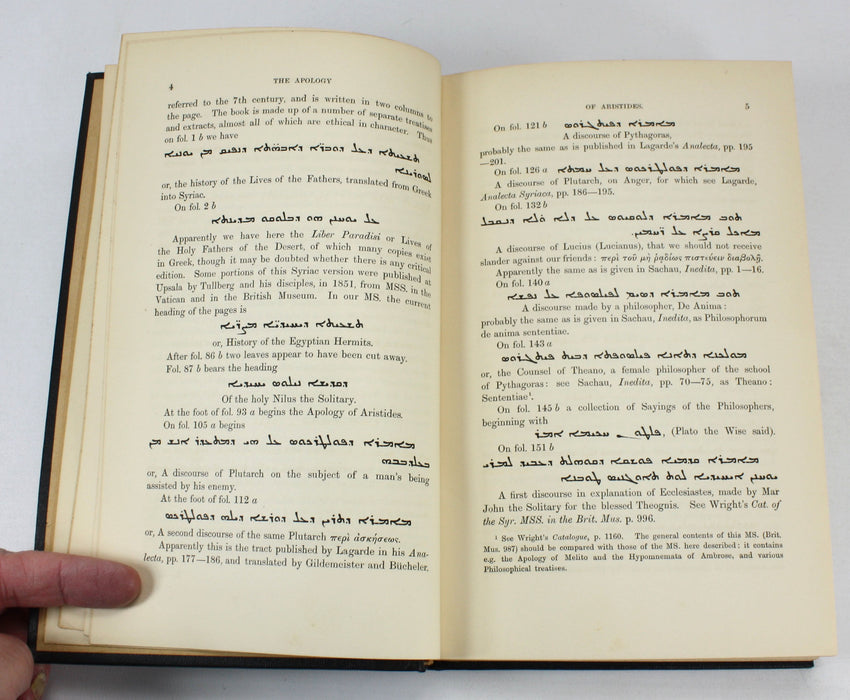 4
THE APOLOGY
referred to the 7th century, and is written in two columns to
the page. The book is made up of a number of separate treatises
and extracts, almost all of which are ethical in character. Thus
on fol. 1 b we have
or, the history of the Lives of the Fathers, translated from Greek
into Syriac.
On fol. 2 b
Apparently we have here the Liber Paradisi or Lives of
the Holy Fathers of the Desert, of which many copies exist
in Greek, though it may be doubted whether there is any critical
edition. Some portions of this Syriac version were published at
Upsala by Tullberg and his disciples, in 1851, from MSS. in the
Vatican and in the British Museum. In our MS. the current
heading of the pages is
or, History of the Egyptian Hermits.
After fol. 86 b two leaves appear to have been cut away.
Fol. 87 b bears the heading
Of the holy Nilus the Solitary.
At the foot of fol. 93 a begins the Apology of Aristides.
On fol. 105 a begins
or, A discourse of Plutarch on the subject of a man's being
assisted by his enemy.
At the foot of fol. 112 a
or, A second discourse of the same Plutarch περὶ ἀσκήσεως.
Apparently this is the tract published by Lagarde in his Ana-
lecta, pp. 177—186, and translated by Gildemeister and Bücheler.
OF ARISTIDES.
5
On fol. 121 b
A discourse of Pythagoras,
probably the same as published in Lagarde's Analecta, pp. 195
—201.
On fol. 126 a
A discourse of Plutarch, on Anger, for which see Lagarde,
Analecta Syriaca, pp. 186—195.
On fol. 132 b
A discourse of Lucius (Lucianus), that we should not receive
slander against our friends: περὶ τοῦ μὴ ῥᾳδίως πιστεύειν διαβολῇ.
Apparently the same as is given in Sachau, Inedita, pp. 1—16.
On fol. 140 a
A discourse made by a philosopher, De Anima:
probably the same as is given in Sachau, Inedita, as Philosophorum
de anima sententiae.
On fol. 143 a
or, the Counsel of Theano, a female philosopher of the school
of Pythagoras: see Sachau, Inedita, pp. 70—75, as Theano:
Sententiae¹.
On fol. 145 b a collection of Sayings of the Philosophers,
beginning with
(Plato the Wise said).
On fol. 151 b
A first discourse in explanation of Ecclesiastes, made by Mar
John the Solitary for the blessed Theognis. See Wright's Cat. of
the Syr. MSS. in the Brit. Mus. p. 996.
¹ See Wright's Catalogue, p. 1160. The general contents of this MS. (Brit.
Mus. 987) should be compared with those of the MS. here described: it contains
e.g. the Apology of Melito and the Hypomnemata of Ambrose, and various
Philosophical treatises.